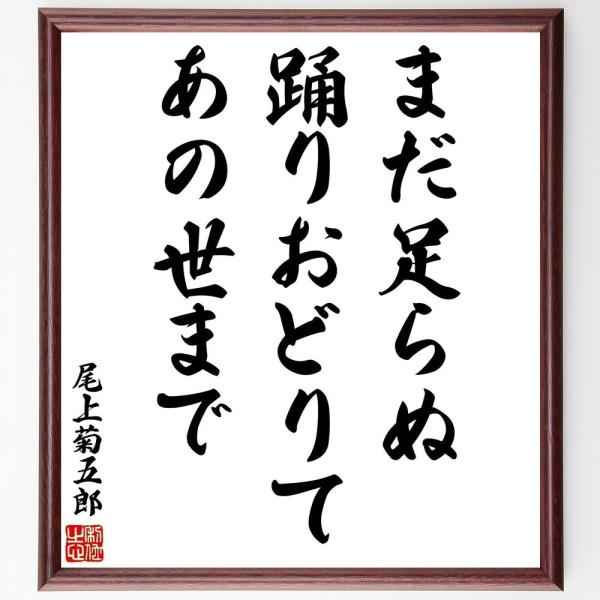 まだ足らぬ
踊りおどりて
あの世まで
尾上菊五郎